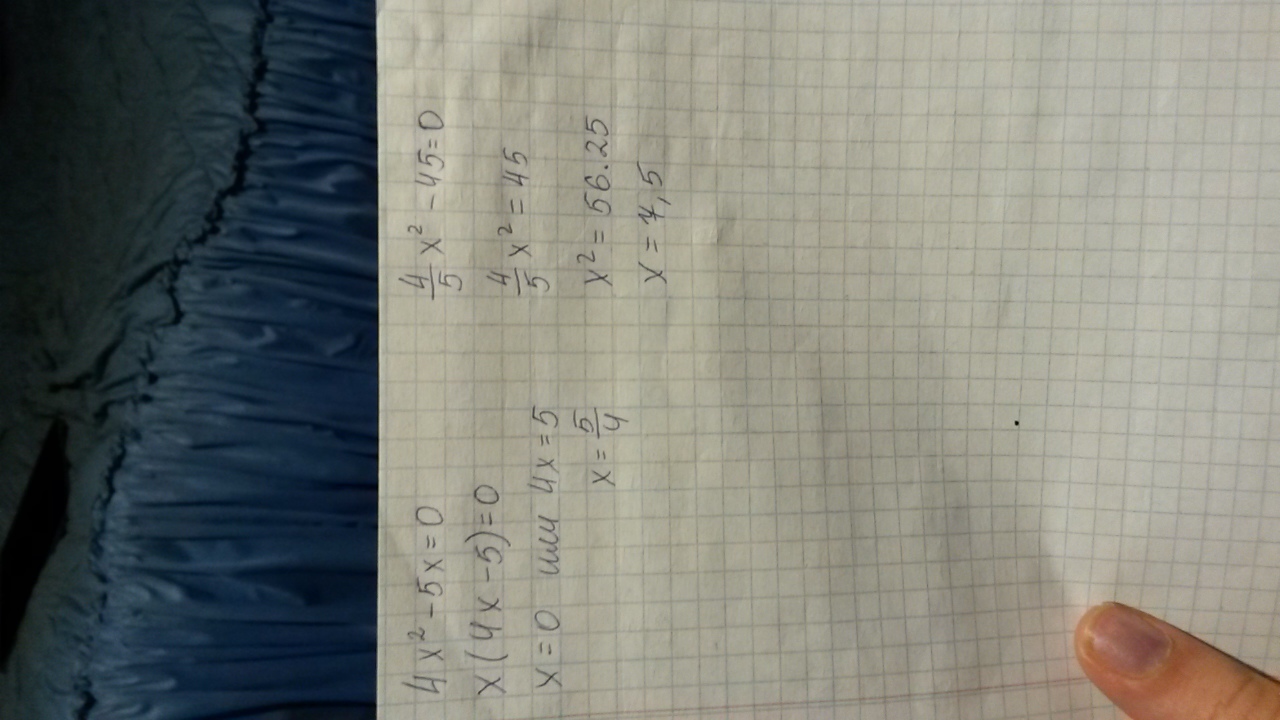 4x² - 5x = 0
x(4x - 5) = 0
x = 0 или 4x = 5
x = 5/4
4/5 x² - 45 = 0
4/5 x² = 45
x² = 56.25
x = 7,5